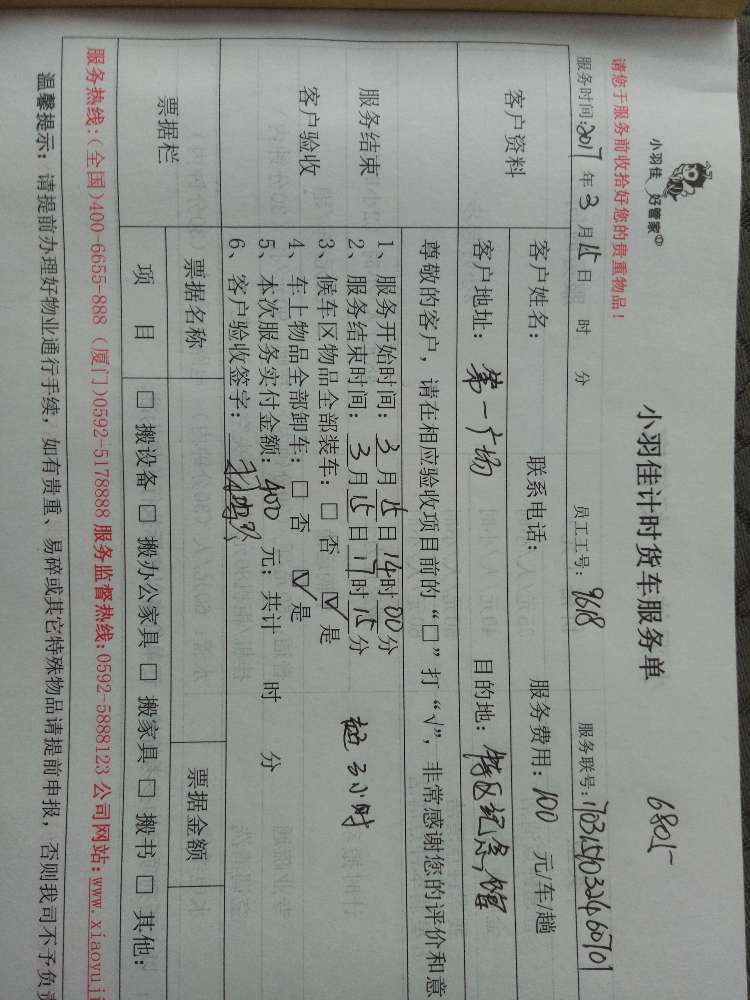 小羽佳 好管家
小羽佳计时货车服务单
6805
请您于服务前收拾好您的贵重物品！
服务时间:2017年3月15日 时 分 员工工号:9618 服务联号:170315103246070
客户资料
客户姓名: 联系电话: 服务费用:100 元/车/趟
客户地址:第一广场 目的地:特区纪念馆
服务结束
客户验收
尊敬的客户，请在相应验收项目前的“□”打“√”，非常感谢您的评价和意
1、服务开始时间:3月15日14时00分
2、服务结束时间:3月15日17时15分 超3小时
3、候车区物品全部装车:□否 ☑是
4、车上物品全部卸车:□否 ☑是
5、本次服务实付金额:400元;共计 时 分
6、客户验收签字:
票据栏
票据名称 票据金额
项 目 □搬设备□搬办公家具□搬家具□搬书□其他:
服务热线:(全国)400-6655-888 (厦门)0592-5178888 服务监督热线:0592-5888123 公司网站:www.xiaoyuji
温馨提示: 请提前办理好物业通行手续，如有贵重、易碎或其它特殊物品请提前申报，否则我司不予负责